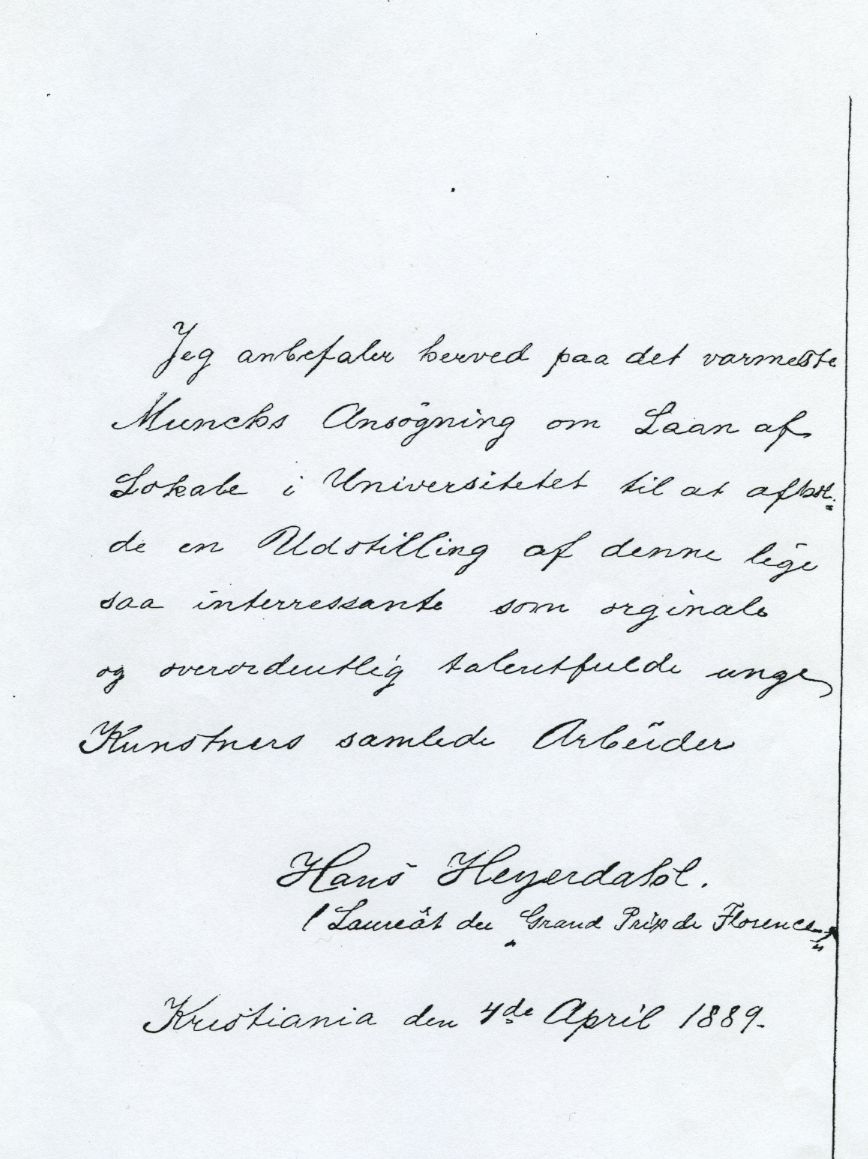 Jeg anbefaler herved paa det varmeste
Munchs Ansøgning om Laan af
Lokale i Universitetet til at afhol-
de en Udstilling af denne lige
saa interressante som orginale
og overordentlig talentfulde unge
Kunstners samlede Arbeider
Hans Heyerdahl.
(Laureât du „Grand Prix de Florence“)
Kristiania den 4de April 1889.